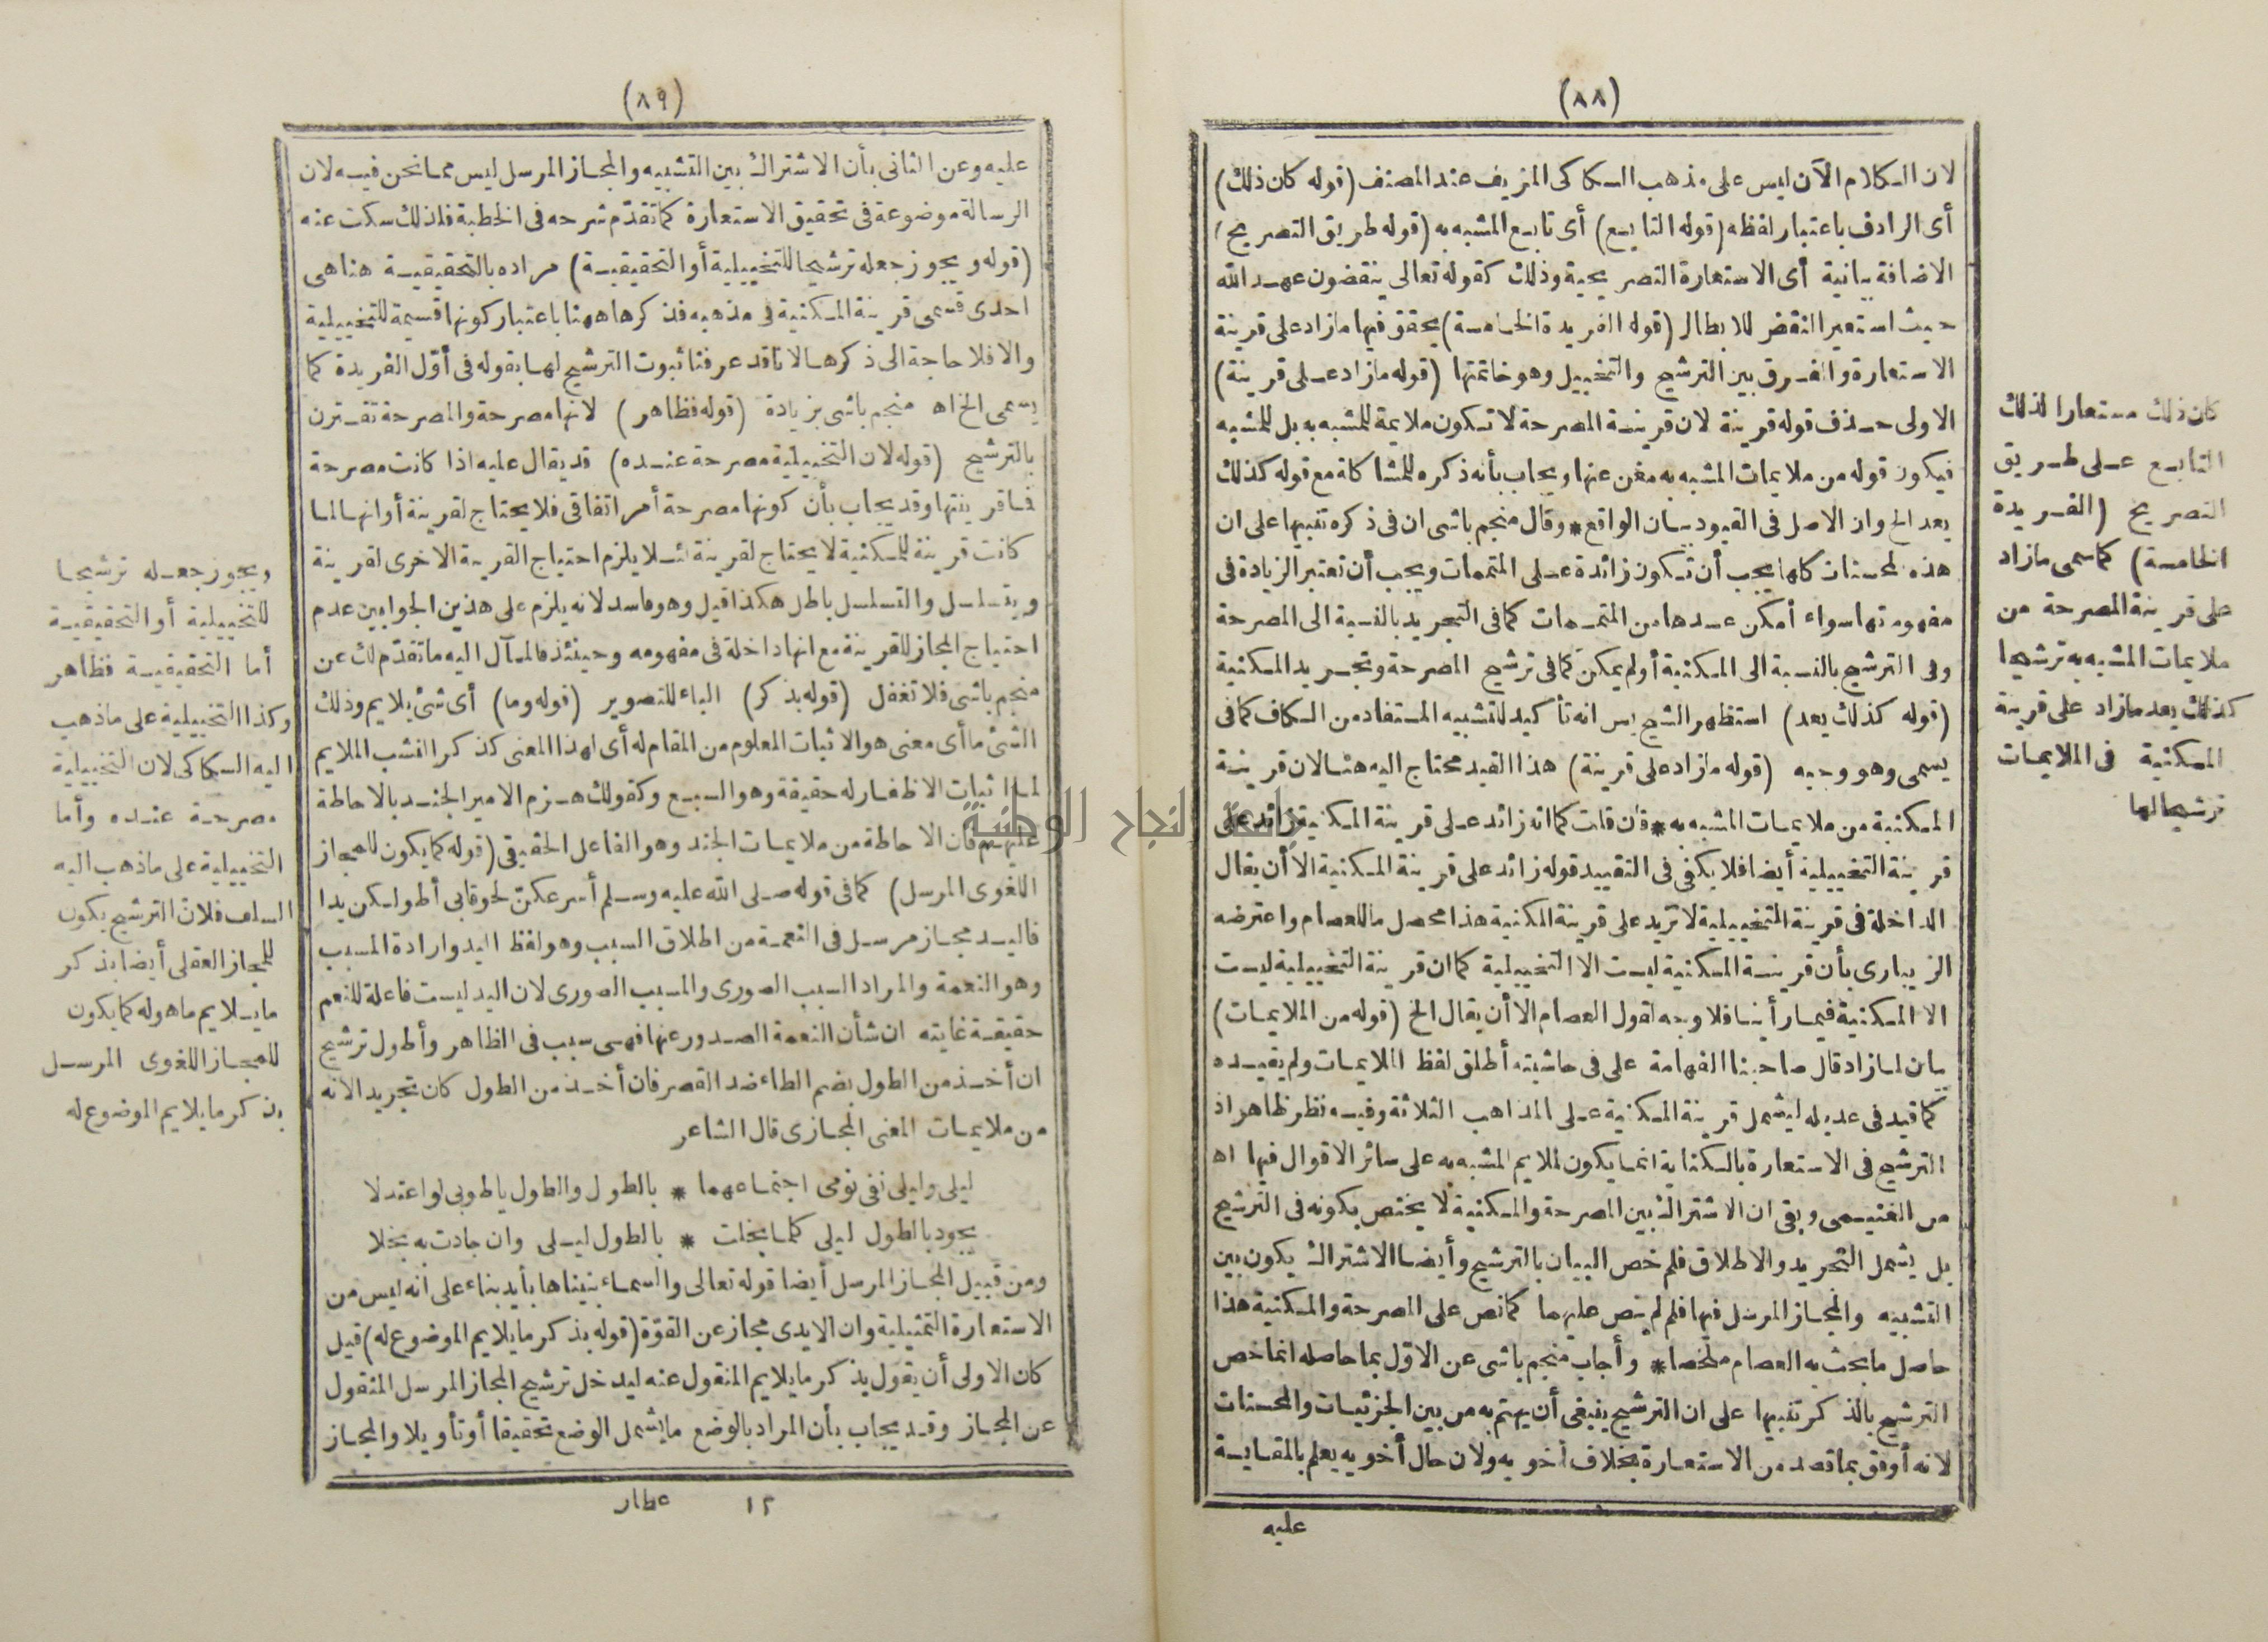 (٨٨)
لان الكلام الآن ليس على مذهب السكاكى المزيف عند المصنف (قوله كان ذلك)
أى الرادف باعتبار لفظه (قوله التابع) أى تابع المشبه به (قوله طريق التصريح)
الاضافة بيانية أى الاستعارة التصريحية وذلك كقوله تعالى ينقضون عهد الله
حيث استعير النقض للابطال (قوله الفريدة الخامسة) يحقق فيها ما زاد على قرينة
الاستعارة والفرق بين الترشيح والتخييل وهو خاتمتها (قوله ما زاد على قرينة)
الاولى حذف قوله قرينة لان قرينة المصرحة لا تكون ملايمة للمشبه به بل للمشبه
فيكون قوله من ملايمات المشبه به مغن عنها ويجاب بأنه ذكره للمشاكاة مع قوله كذلك
يعد الخ وان الاصل فى القيود بيان الواقع * وقال منجم باشى ان فى ذكره تنبيها على ان
هذه المحسنات كلها يجب أن تكون زائدة على المتممات ويجب أن تعتبر الزيادة فى
مفهوماتها سواء أمكن عدها من المتممات كما فى التجريد بالنسبة الى المصرحة
وفى الترشيح بالنسبة الى المكنية أو لم يمكن كما فى ترشيح المصرحة وتجريد المكنية
(قوله كذلك يعد) استظهر الشيخ يس انه تأكيد للتشبيه المستفاد من الكاف كما فى
يسمى وهو وجيه (قوله ما زاد على قرينة) هذا القيد محتاج اليه هنا لان قرينة
المكنية من ملايمات المشبه به * فان قلت كما انه زائد على قرينة المكنية زائد على
قرينة التخييلية أيضا فلا يكفى فى التقييد قوله زائد على قرينة المكنية الا أن يقال
الداخلة فى قرينة التخييلية لا تزيد على قرينة المكنية هذا محصل ما للعصام واعترضه
الزيبارى بأن قرينة المكنية ليست الا التخييلية كما ان قرينة التخييلية ليست
الا المكنية فيما رأينا فلا وجه لقول العصام الا أن يقال الخ (قوله من الملايمات)
بيان لما زاد قال صاحبنا الفهامة على فى حاشيته أطلق لفظ الملايمات ولم يقيده
كما قيد فى عديله ليشمل قرينة المكنية على المذاهب الثلاثة وفيه نظر ظاهر اذ
الترشيح فى الاستعارة بالكناية انما يكون لملايم المشبه به على سائر الاقوال فيها اه
من الغنيمى وبقى ان الاشتراك بين المصرحة والمكنية لا يختص بكونه فى الترشيح
بل يشمل التجريد والاطلاق فلم خص البيان بالترشيح وأيضا الاشتراك يكون بين
التشبيه والمجاز المرسل فيها فلم لم ينص عليهما كما نص على المصرحة والمكنية هذا
حاصل ما بحث به العصام ملخصا * وأجاب منجم باشى عن الاول بما حاصله انما خص
الترشيح بالذكر تنبيها على ان الترشيح ينبغى أن يهتم به من بين الجزئيات والمحسنات
لانه أوفق بما قصد من الاستعارة بخلاف أخويه ولان حال أخويه يعلم بالمقايسة
عليه
كان ذلك مستعارا لذلك
التابع على طريق
التصريح (الفريدة
الخامسة) كما سمى ما زاد
على قرينة المصرحة من
ملايمات المشبه به ترشيحا
كذلك يعد ما زاد على قرينة
المكنية فى الملايمات
ترشيحا لها
(٨٩)
عليه وعن الثانى بأن الاشتراك بين التشبيه والمجاز المرسل ليس مما نحن فيه لان
الرسالة موضوعة فى تحقيق الاستعارة كما تقدّم شرحه فى الخطبة فلذلك سكت عنه
(قوله ويجوز جعله ترشيحا للتخييلية أو التحقيقية) مراده بالتحقيقية هنا هى
احدى قسمى قرينة المكنية فى مذهبه فذكرها ههنا باعتبار كونها قسيمة للتخييلية
والا فلا حاجة الى ذكرها لاناقد عرفنا ثبوت الترشيح لها بقوله فى أوّل الفريدة كما
يسمى الخ اه منجم باشى بزيادة (قوله فظاهر) لانها مصرحة والمصرحة تقترن
بالترشيح (قوله لان التخييلية مصرحة عنده) قد يقال عليه اذا كانت مصرحة
فما قرينتها وقد يجاب بأن كونها مصرحة أمر اتفاقى فلا يحتاج لقرينة أو انها لما
كانت قرينة للمكنية لا يحتاج لقرينة لئلا يلزم احتياج القرينة الاخرى لقرينة
ويتسلسل والتسلسل باطل هكذا قيل وهو فاسد لانه يلزم على هذين الجوابين عدم
احتياج المجاز للقرينة مع انها داخلة فى مفهومه وحينئذ فالمآل اليه ما تقدّم لك عن
منجم باشى فلا تغفل (قوله بذكر) الباء للتصوير (قوله وما) أى شئ يلايم وذلك
الشئ ما أى معنى هو الاثبات المعلوم من المقام له أى لهذا المعنى كذكر النشب الملايم
لما اثبات الاظفار له حقيقة وهو السبع وكقولك هزم الامير الجند بالاحاطة
عليهم فان الاحاطة من ملايمات الجند وهو الفاعل الحقيقى (قوله كما يكون للمجاز
اللغوى المرسل) كما فى قوله صلى الله عليه وسلم أسرعكنّ لحوقا بى أطولكن يدا
فاليد مجاز مرسل فى النعمة من اطلاق السبب وهو لفظ اليد وارادة المسبب
وهو النعمة والمراد السبب الصورى والمسبب الصورى لان اليد ليست فاعلة للنعم
حقيقة غايته ان شأن النعمة الصدور عنها فهى سبب فى الظاهر وأطول ترشيح
ان أخذ من الطول بضم الطاء ضد القصر فان أخذ من الطول كان تجريدا لانه
من ملايمات المعنى المجازى قال الشاعر
ليلى وليلى نفى نومى اجتماعهما * بالطول والطول يا طوبى لو اعتدلا
يجود بالطول ليلى كلما بخلت * بالطول ليلى وان جادت به بخلا
ومن قبيل المجاز المرسل أيضا قوله تعالى والسماء بنيناها بأيد بناء على انه ليس من
الاستعارة التمثيلية وان الايدى مجاز عن القوّة (قوله بذكر ما يلايم الموضوع له) قيل
كان الاولى أن يقول بذكر ما يلايم المنقول عنه ليدخل ترشيح المجاز المرسل المنقول
عن المجاز وقد يجاب بأن المراد بالوضع ما يشمل الوضع تحقيقا أو تأويلا والمجاز
١٢ عطار
ويجوز جعله ترشيحا
للتخييلية أو التحقيقية
أما التحقيقية فظاهر
وكذا التخييلية على ما ذهب
اليه السكاكى لان التخييلية
مصرحة عنده وأما
التخييلية على ما ذهب اليه
السلف فلان الترشيح يكون
للمجاز العقلى أيضا بذكر
ما يلايم ما هو له كما يكون
للمجاز اللغوى المرسل
بذكر ما يلايم الموضوع له
جامعة النجاح الوطنية